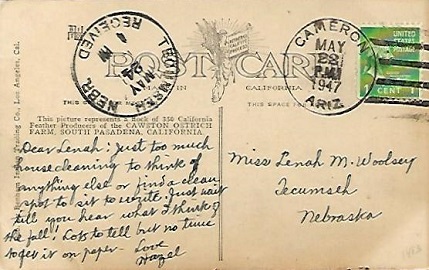 TECUMSEH
MAY
NEBR.
RECEIVED
POST CARD
MADE IN CALIFORNIA.
CAMERON
MAY
28
P M
1947
ARIZ.
UNITED
STATES
POSTAGE
1 CENT 1
THIS SPACE FOR
THIS SPACE
This picture represents a flock of 350 California
Feather Producers of the CAWSTON OSTRICH
FARM, SOUTH PASADENA, CALIFORNIA.
Co., Los Angeles, Cal.
Dear Lenah: Just too much
housecleaning to think of
anything else or find a clean
spot to sit to write. Just wait
till you hear what I think of
the fall! Lots to tell but no time
to get it on paper. Love
Hazel
Miss Lenah M. Woolsey
Tecumseh
Nebraska